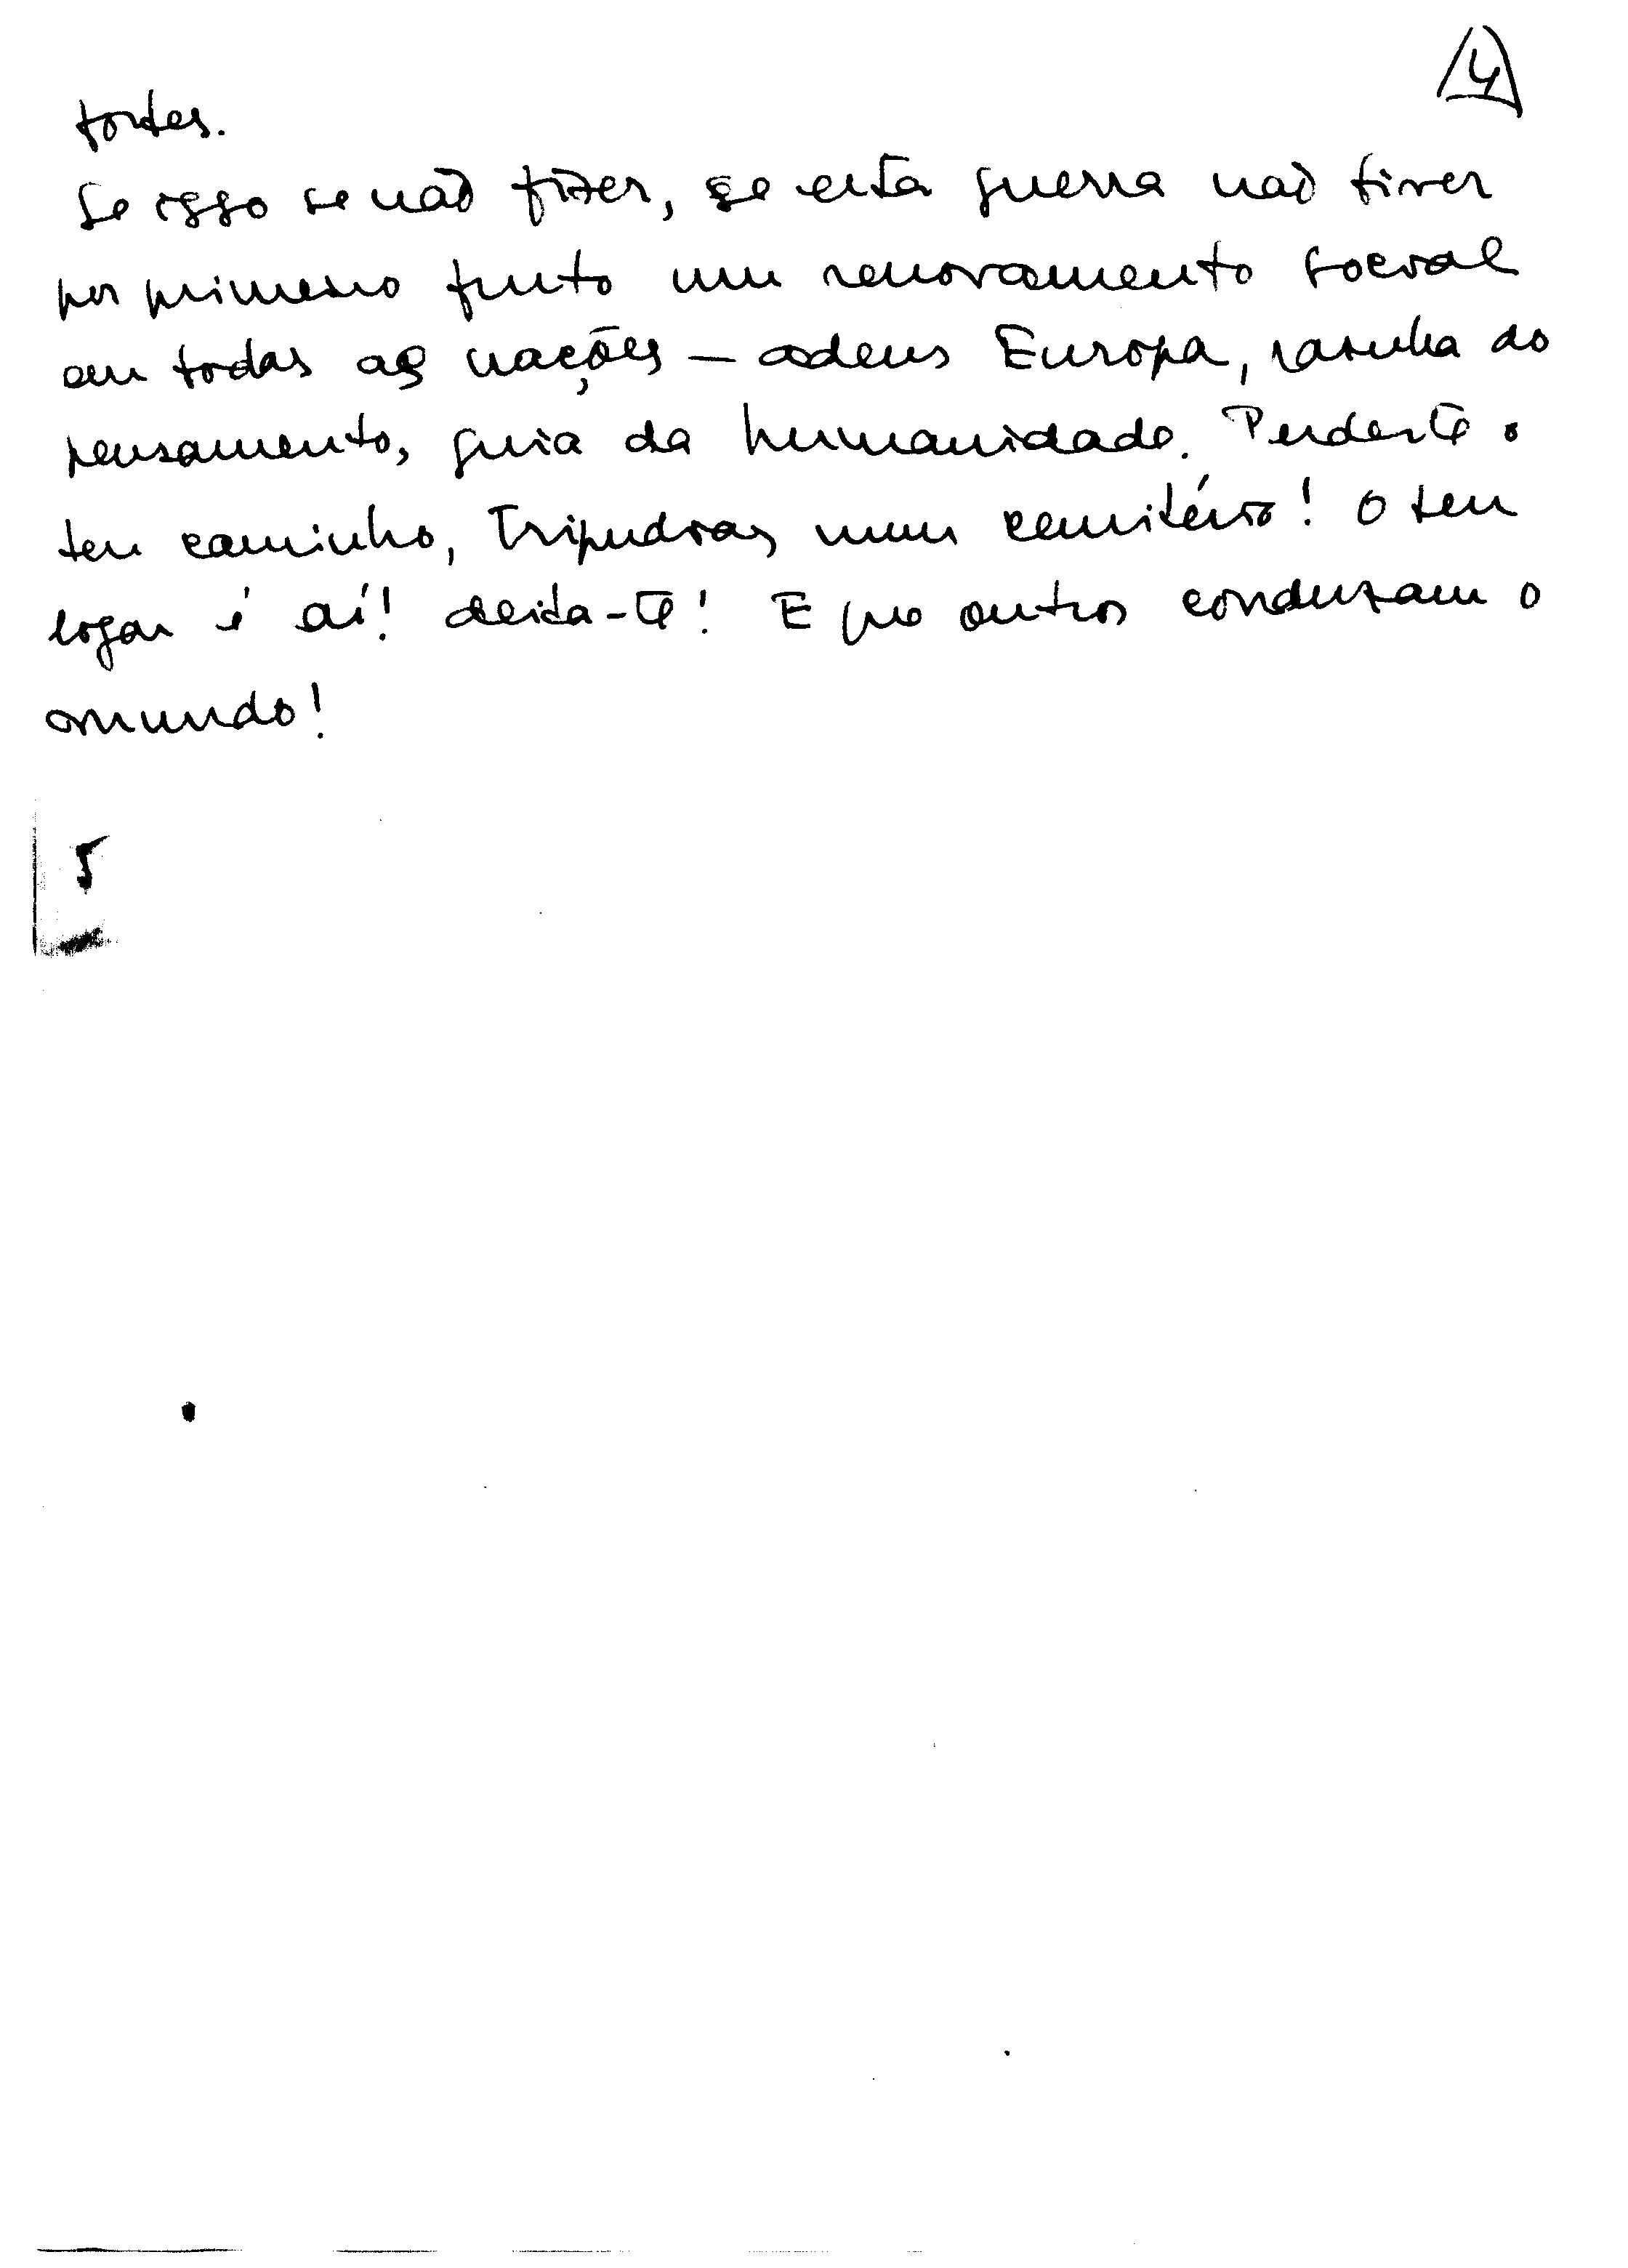 4
fortes.
Se isso se não fizer, se esta guerra não tiver
por primeiro fruto um renovamento social
em todas as nações — adeus Europa, rainha do
pensamento, guia da humanidade. Perdeste o
teu caminho, tripudias num cemitério! O teu
logar é aí! deita-te! E que outros conduzam o
mundo!
5